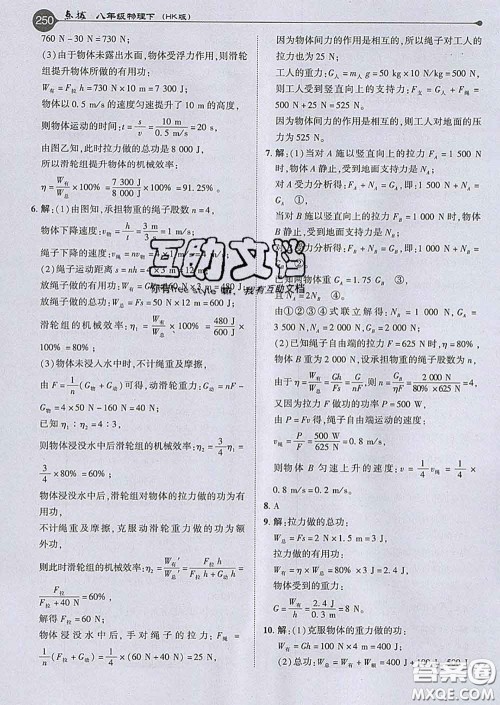 250 点拨 八年级物理下 (HK版)
760 N-30 N=730 N。
(3)由于物体未露出水面,物体受浮力不变,则滑轮
组提升物体所做的有用功:
W有=F拉h=730 N×10 m=7 300 J。
物体以 0.5 m/s 的速度匀速提升了 10 m 的高度,
则物体运动的时间:t=s/v=10 m/0.5 m/s=20 s,
由图乙知,此时拉力做的总功为 8 000 J,
所以滑轮组提升物体的机械效率:
η=W有/W总×100%=7 300 J/8 000 J×100%=91.25%。
6. 解:(1)由图知,承担物重的绳子股数 n=4,
物体下降速度:v=h/t=3 m/3 s=1 m/s,
绳子下降的速度:
(2)绳子运动距离:s=nh=
放绳子做的有用功:
放绳子做的总功:
50 N×12 m=600 J,
滑轮组的机械效率:η=W有/W总×100%=480 J/600 J
×100%=80%;
(3)物体未浸入水中时,不计绳重及摩擦,
由 F=1/n(G物+G动)可得,动滑轮重力:G动=nF-
G物=4×50 N-160 N=40 N。
已知:
则物体浸没水中后滑轮组的机械效率:η2=3/4η1=
3/4×80%=60%,
物体浸没水中后,滑轮组对物体的拉力做的功为有
用功,
不计绳重及摩擦,克服动滑轮重力做的功为额
外功,
则此时滑轮组的机械效率:η2=W有′/W总′=F拉h/F拉h+G动h=
F拉/F拉+G动=F拉/F拉+40 N=60%,
解得 F拉=60 N。
物体浸没水中后,手对绳子的拉力:F绳=
1/n(F拉+G动)=1/4×(60 N+40 N)=25 N。
因为物体间力的作用是相互的,所以绳子对工人的
拉力也为 25 N;
工人的重力:G人=m人g=50 kg×10 N/kg=500 N,
则工人受到竖直向上的支持力:F支=G人+F绳=
500 N+25 N=525 N。
因为物体间力的作用是相互的,工人对地面的压
力为 525 N。
7. 解:(1)当对 A 施以竖直向上的拉力 FA=1 500 N
时,物体 A 静止,受到地面支持力为 NA。
对 A 受力分析得:FA+NA=GA,即 1 500 N+NA=
GA ①
当对 B 施以竖直向上的拉力 FB=1 000 N 时,物体
B 静止,受到地面支持力是 NB。
对 B 受力分析得:FB+NB=GB,即 1 000 N+NB=
已知两物体重 GA=1.75 GB ③
且 NA=2NB ④
由①②③④式联立解得:GB=2 000 N。
(2)已知绳子自由端的拉力 F=625 N 时,
物体 B 重为 2 000 N,设承担物重的绳子股数为 n,
由于 η=W有/W总=Gh/Fs=G/nF,则 n=G/ηF=2 000 N/80%×625 N=4
又因为拉力 F 做功的功率 P=500 W,
由 P=Fv 得,绳子自由端运动速度:
v绳=P/F=500 W/625 N=0.8 m/s,
则物体 B 匀速上升的速度:v=1/4v绳=1/4×
0.8 m/s=0.2 m/s。
8. A
9. 解:拉力做的总功:
W总=Fs=2 N×1.5 m=3 J,
拉力做的有用功:
W有=η×W总=80%×3 J=2.4 J;
物体受到的重力:
G=W有/h=2.4 J/0.3 m=8 N。
10. 解:(1)克服物体的重力做的功:
W有=Gh=100 N×4 m=400 J;
(2)总功:W总=W有+W额=400 J+100 J=500 J
互助文档
答案圈
MXQE.COM